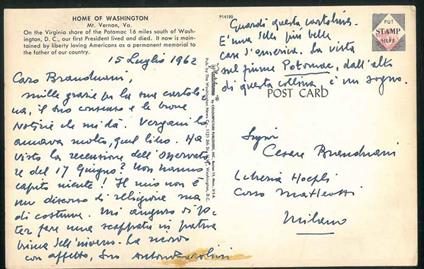 HOME OF WASHINGTON
Mt. Vernon, Va.
On the Virginia shore of the Potomac 16 miles south of Wash-
ington, D. C., our first President lived and died. It now is main-
tained by liberty loving Americans as a permanent memorial to
the father of our country.
15 Luglio 1962
Caro Branduani,
mille grazie per la sua cartoli-
na, il suo consenso e le buone
Notizie che mi dà. Vergani lo
amava molto, quel libro. Ha
visto la recensione dell'Osservato-
re del 17 Giugno? Non hanno
capito niente! Il mio non è
un discorso di religione ma
di costume. Mi auguro di po-
ter fare una scappata in patria
prima dell'inverno. La
con affetto, suo Antonio
P14190
Guardi questa cartolina.
È una delle più belle
case d'America. La vista
sul fiume Potomac, dall'alto
di questa collina è un sogno.
PUT
STAMP
HERE
POST CARD
Signor
Cesare Branduani
Libreria Hoepli
Corso Matteotti
Milano